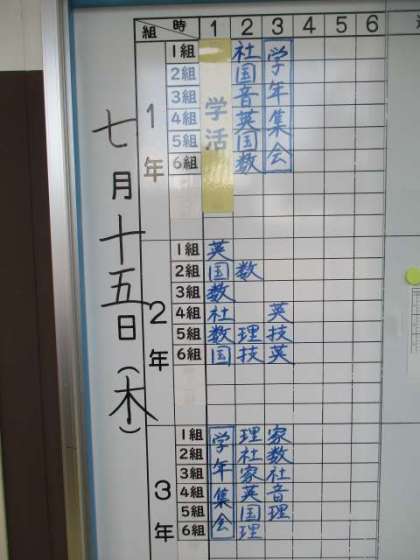 組 時 1 2 3 4 5 6
七月十五日(木)
1年
1組 社
2組 国
3組 音
4組 英
5組 国
6組 数
学活
学年集会
2年
1組 英
2組 国 数
3組 数
4組 社 英
5組 数 理 技
6組 国 技 英
3年
1組 理 家
2組 社 数
3組 家 社
4組 英 音
5組 国 理
6組 理
学年集会